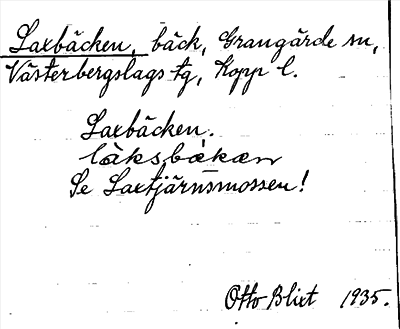 Laxbäcken, bäck, Grangärde sn,
Västerbergslags tg, Kopp. l.
Laxbäcken.
làksbɛ̀kæn
Se Laxtjärnsmossen!
Otto Blixt 1935.